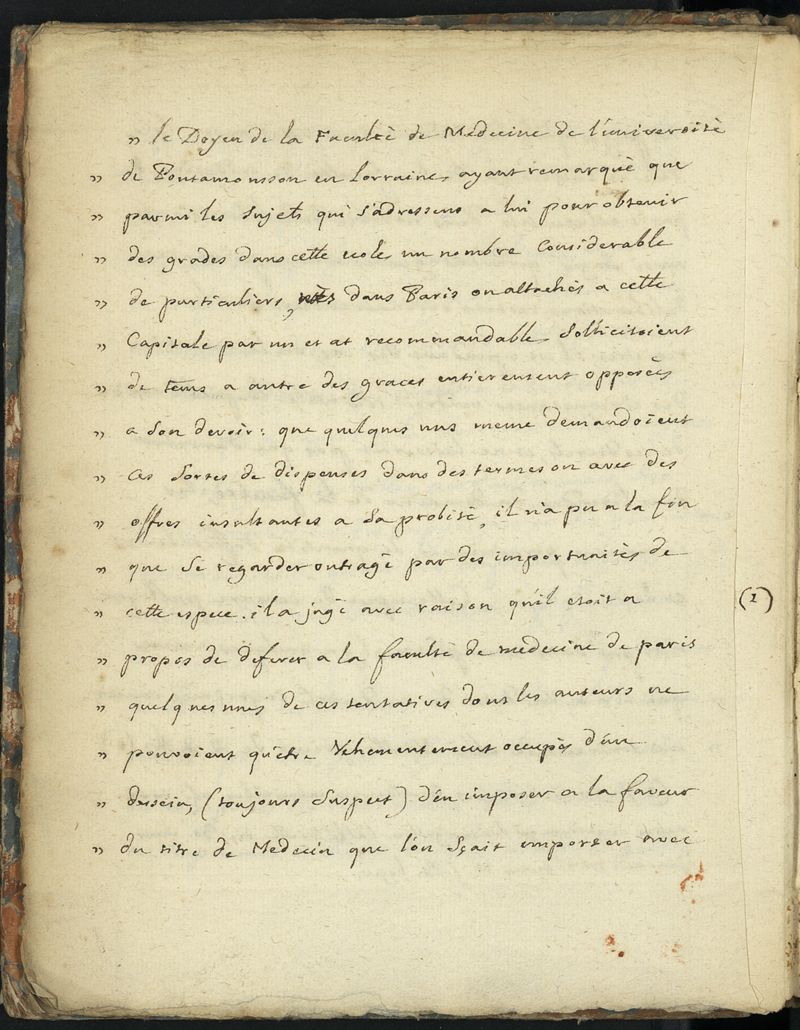 " le Doyen de la Faculté de Medecine de l'université
" de Pontamousson en Lorraine, ayant remarqué que
" parmi les sujets qui s'adressens a lui pour obtenir
" des grades dans cette ecole un nombre Considerable
" de particuliers, nés dans Paris ou attachés a cette
" Capitale par un etat recommandable, sollicitoient
" de tems a autre des graces entierement opposées
" a son devoir: que quelques uns meme demandoient
" ces sortes de dispenses dans des termes ou avec des
" offres insultantes a sa probité, il n'a pu a la fin
" que se regarder outragé par des importunités de
" cette espece. il a jugé avec raison qu'il etoit a
(1)
" propos de deferer a la faculté de medecine de paris
" quelques unes de ces tentatives dont les auteurs ne
" pouvoient qu'étre Vehementement occupés d'un
" dessein, (toujours suspect) d'en imposer a la faveur
" du titre de Medecin que l'on sçait emporter avec